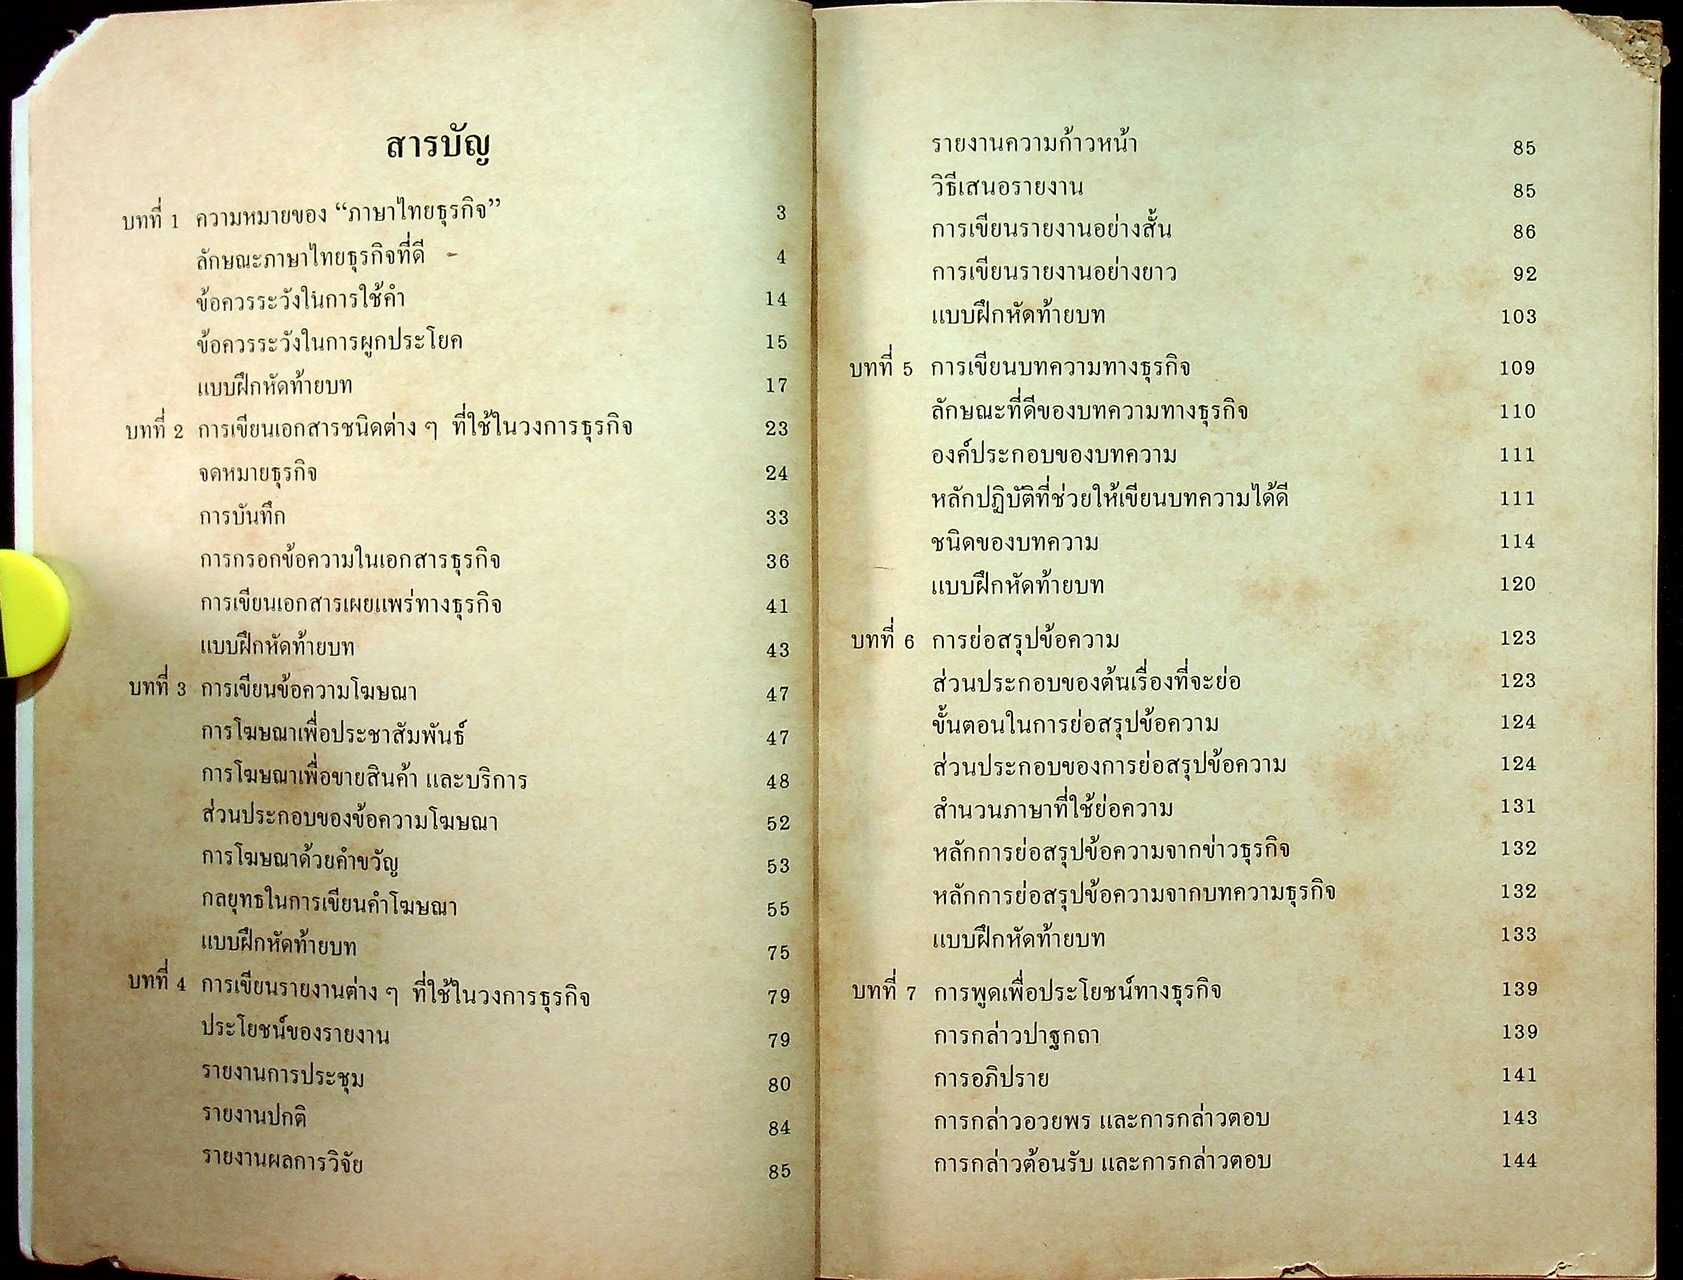 สารบัญ
บทที่ 1 ความหมายของ “ภาษาไทยธุรกิจ” 3
ลักษณะภาษาไทยธุรกิจที่ดี 4
ข้อควรระวังในการใช้คำ 14
ข้อควรระวังในการผูกประโยค 15
แบบฝึกหัดท้ายบท 17
บทที่ 2 การเขียนเอกสารชนิดต่าง ๆ ที่ใช้ในวงการธุรกิจ 23
จดหมายธุรกิจ 24
การบันทึก 33
การกรอกข้อความในเอกสารธุรกิจ 36
การเขียนเอกสารเผยแพร่ทางธุรกิจ 41
แบบฝึกหัดท้ายบท 43
บทที่ 3 การเขียนข้อความโฆษณา 47
การโฆษณาเพื่อประชาสัมพันธ์ 47
การโฆษณาเพื่อขายสินค้า และบริการ 48
ส่วนประกอบของข้อความโฆษณา 52
การโฆษณาด้วยคำขวัญ 53
กลยุทธในการเขียนคำโฆษณา 55
แบบฝึกหัดท้ายบท 75
บทที่ 4 การเขียนรายงานต่าง ๆ ที่ใช้ในวงการธุรกิจ 79
ประโยชน์ของรายงาน 79
รายงานการประชุม 80
รายงานปกติ 84
รายงานผลการวิจัย 85
รายงานความก้าวหน้า 85
วิธีเสนอรายงาน 85
การเขียนรายงานอย่างสั้น 86
การเขียนรายงานอย่างยาว 92
แบบฝึกหัดท้ายบท 103
บทที่ 5 การเขียนบทความทางธุรกิจ 109
ลักษณะที่ดีของบทความทางธุรกิจ 110
องค์ประกอบของบทความ 111
หลักปฏิบัติที่ช่วยให้เขียนบทความได้ดี 111
ชนิดของบทความ 114
แบบฝึกหัดท้ายบท 120
บทที่ 6 การย่อสรุปข้อความ 123
ส่วนประกอบของต้นเรื่องที่จะย่อ 123
ขั้นตอนในการย่อสรุปข้อความ 124
ส่วนประกอบของการย่อสรุปข้อความ 124
สำนวนภาษาที่ใช้ย่อความ 131
หลักการย่อสรุปข้อความจากข่าวธุรกิจ 132
หลักการย่อสรุปข้อความจากบทความธุรกิจ 132
แบบฝึกหัดท้ายบท 133
บทที่ 7 การพูดเพื่อประโยชน์ทางธุรกิจ 139
การกล่าวปาฐกถา 139
การอภิปราย 141
การกล่าวอวยพร และการกล่าวตอบ 143
การกล่าวต้อนรับ และการกล่าวตอบ 144